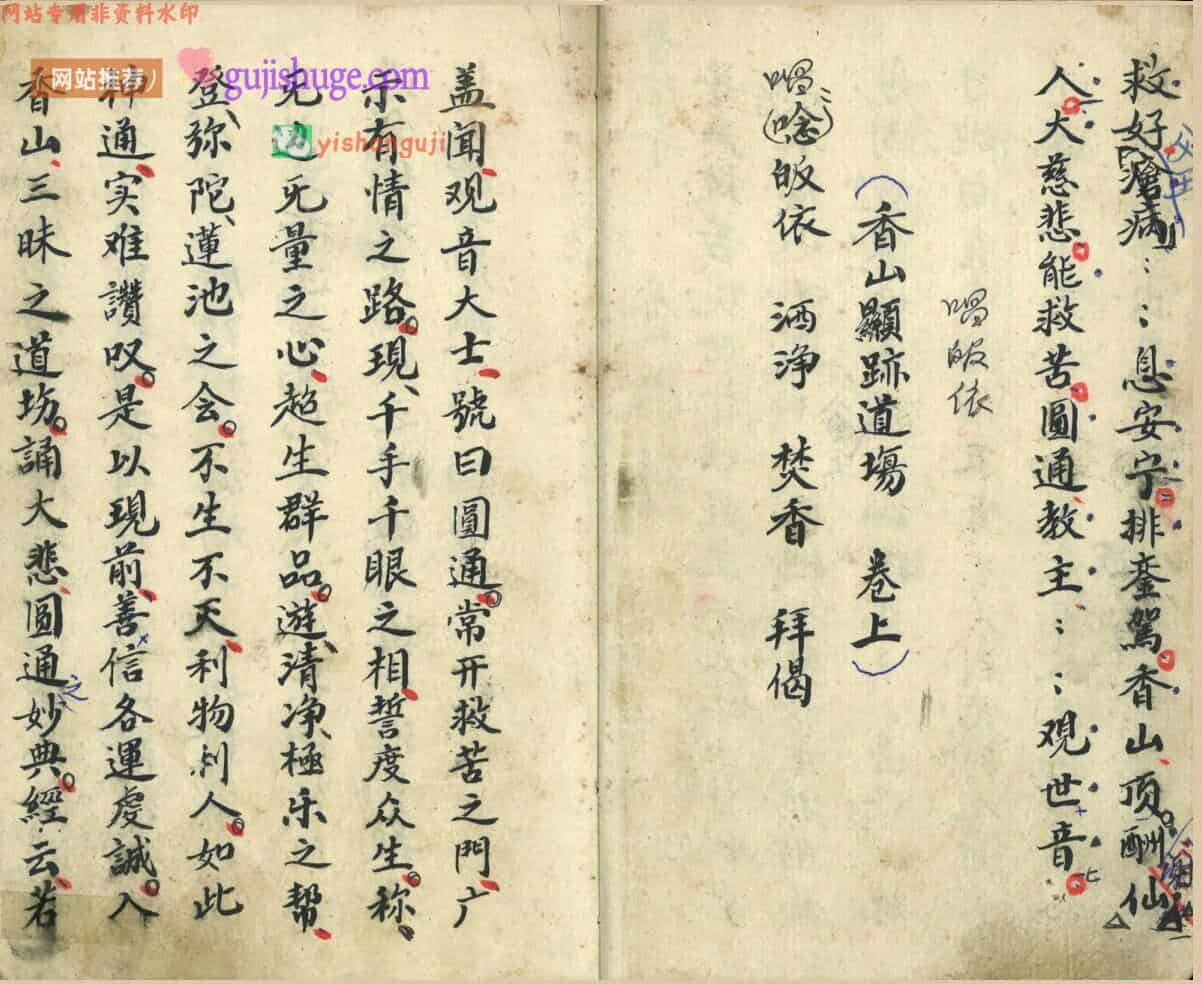 网站专用非资料水印
网站推荐
gujishuge.com
yishanguji
救好瘡病：：息安宁排銮駕香山頂酬仙
父母
谢
人大慈悲能救苦圓通教主：：观世音
唱皈依
（香山顯跡道塲 卷上）
唱（唸）皈依 洒净 焚香 拜偈
盖闻观音大士號曰圓通常开救苦之門广
示有情之路現千手千眼之相誓度众生称
无量之心超生群品遊清净極乐之帮
登弥陀蓮池之会不生不灭利物利人如此
神通实难讚叹是以現前善信各運虔誠入
香山三昧之道场誦大悲圆通之妙典經云若